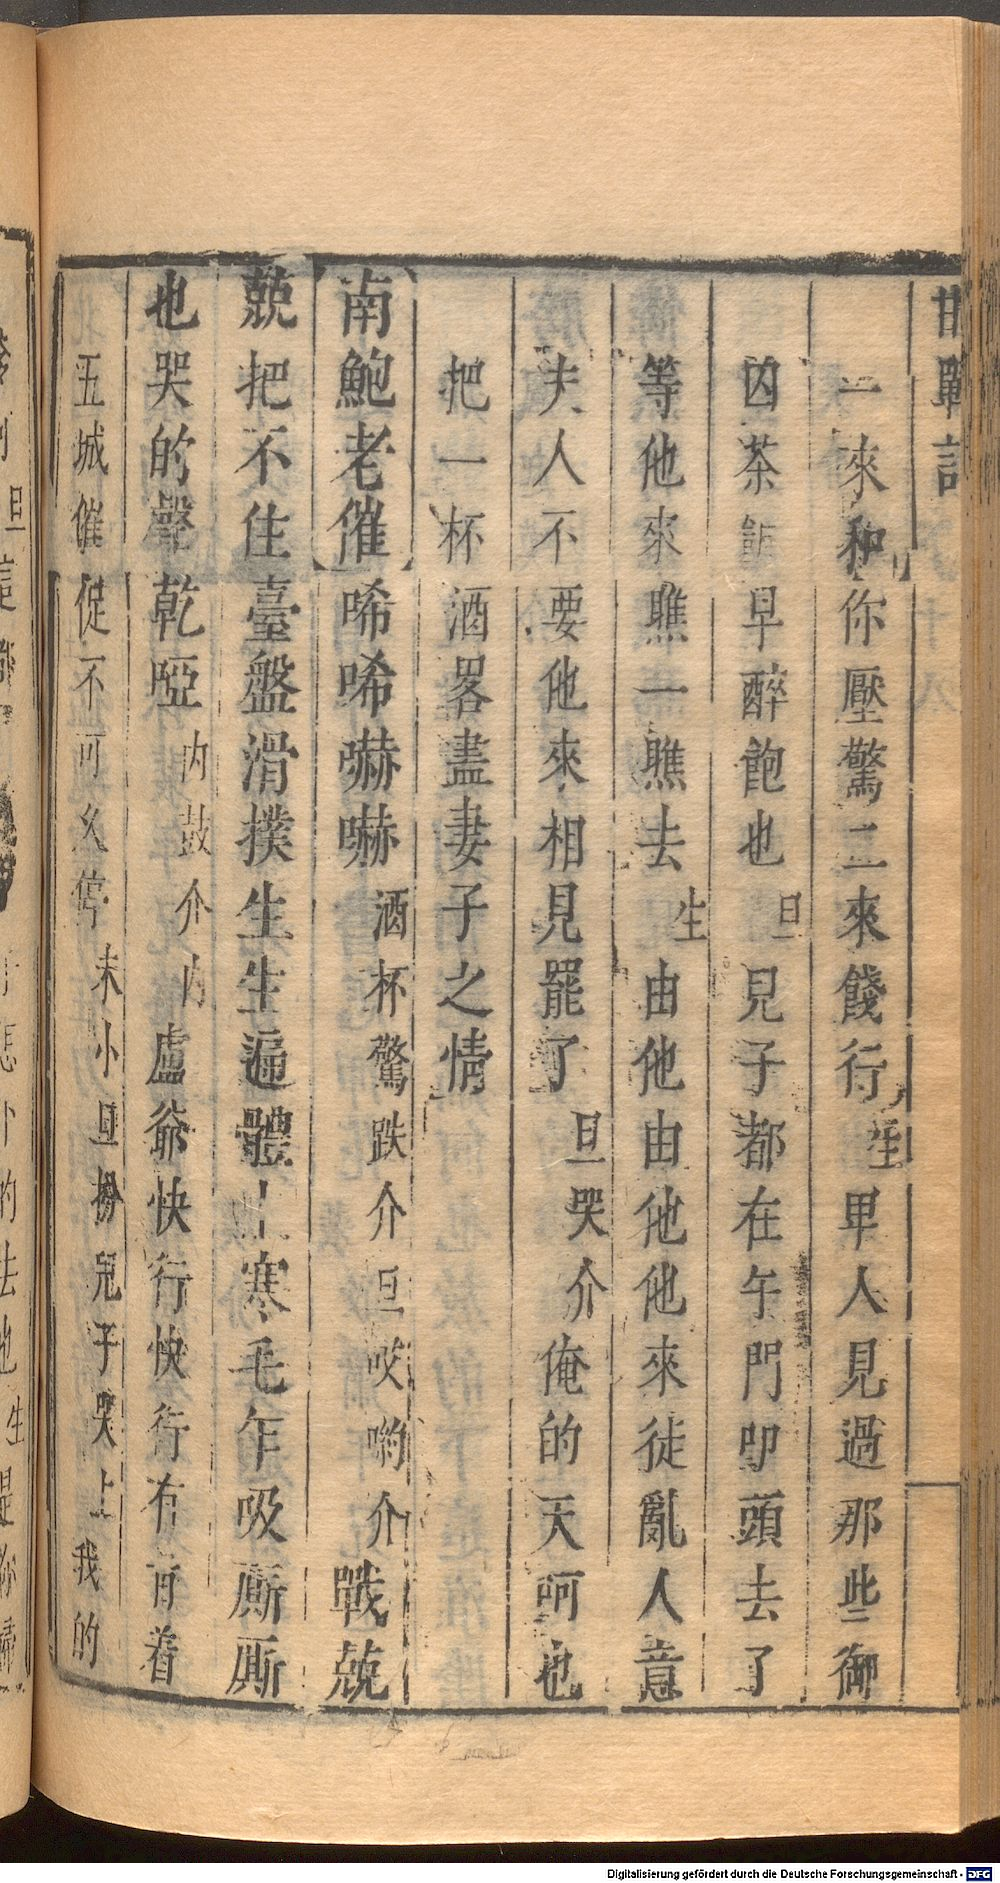 邯鄲記
一來和你壓驚二來餞行生卑人見過那些御
囚茶飯早醉飽也旦兒子都在午門叩頭去了
等他來瞧一瞧去生由他由他他來徒亂人意
夫人不要他來相見罷了旦哭介俺的天呵也
把一杯酒畧盡妻子之情
南鮑老催唏唏嚇嚇酒杯驚跌介旦哎喲介戰兢
兢把不住臺盤滑撲生生遍體上寒毛乍吸廝廝
也哭的聲乾啞內鼓介內盧爺快行快行有旨着
五城催促不可久停末小旦扮兒子哭上我的
Digitalisierung gefördert durch die Deutsche Forschungsgemeinschaft - DFG